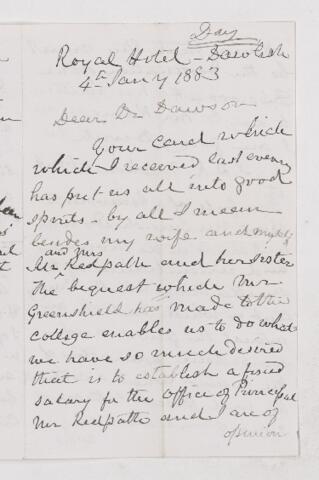 Day
Royal Hotel - Dawlish
4th Jany 1883
Dear Dr Dawson
Your card which
which I received last eveng
has put us all into good
spirits - by all I mean
besides my wife and myself
Mr and Mrs Redpath and her sister
the bequest which Mr
Greenshield has made to the
college enables us to do what
we have so much desired
that is to establish a fixed
salary for the office of Principal
Mr Redpath and I are of
opinion